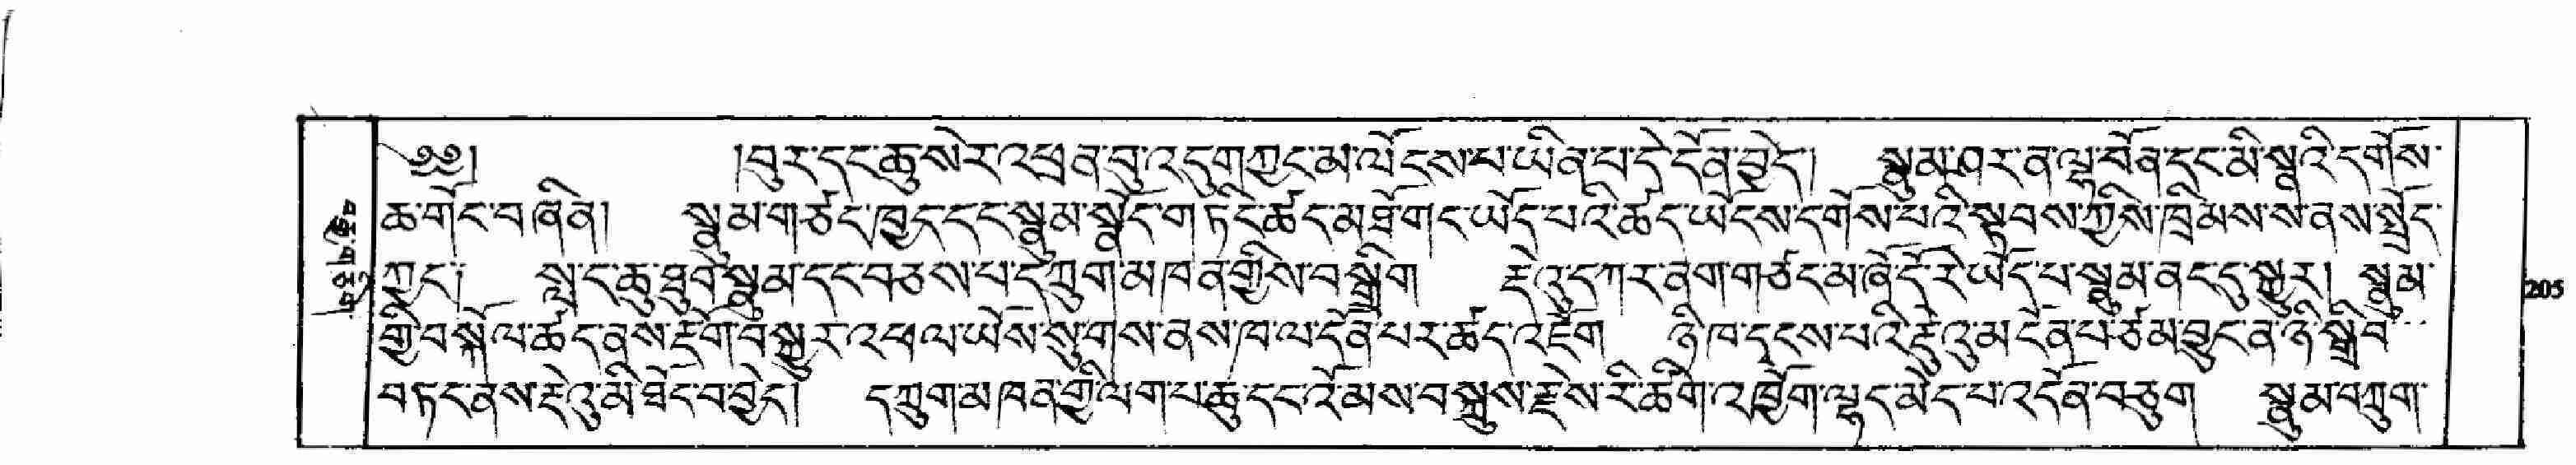 ༄༅། །བུར་དང་ཆུ་སེར་འཕྲན་བུ་འདུག་ཀྱང་མ་ལོངས་པ་ཡིན་པ་དེ་དོན་བྱེད། སྣུམ་ཤར་ན་ལྷ་བོན་དང་མི་སྣའི་དགོས་
ཆ་གོང་བཞིན། སྣུམ་གཙང་ཁྱད་དང་སྣུམ་སྣོད་གཏིང་ཚད་མཐོ་གང་ཡོད་པའི་ཚད་ཡོངས་དགོས་པའི་སྟབས་ཀྱིས་ཁྲིམས་ས་ནས་སྤྲོད་
ཀྱང་། སླ་ང་ཆུ་ཐུབ་སྣུམ་དང་བཅས་པ་དཀྲུག་མཁན་གྱིས་བསྒྲིག རྡེའུ་དཀར་ནག་གཙང་མ་ཞེ་དོ་རེ་ཡོད་པ་སྣུམ་ནང་དུ་སྐྱུར། སྣུམ་
གྱི་བསྐོལ་ཚད་ནས་རྡོག་བསྐྱུར་འཕལ་ཡོས་སུ་གས་ནས་ཁ་ལ་དོན་པར་ཚད་འཇོག ཉི་ཁ་དྭངས་པའི་རྡེའུ་མངོན་པ་ཙམ་བྱུང་ན་ཉི་སྒྲིབ་
བཏང་ནས་རྡེའུ་མི་ཐོང་བ་བྱེད། དཀྲུག་མཁན་གྱི་ལག་པ་ཆུ་དང་འོ་མས་བསྐྲུས་རྗེས་རི་ཚིག་འཁྱོག་ལྷད་མེད་པ་འདོན་བཅུག སྣུམ་བཀྲུག་
205